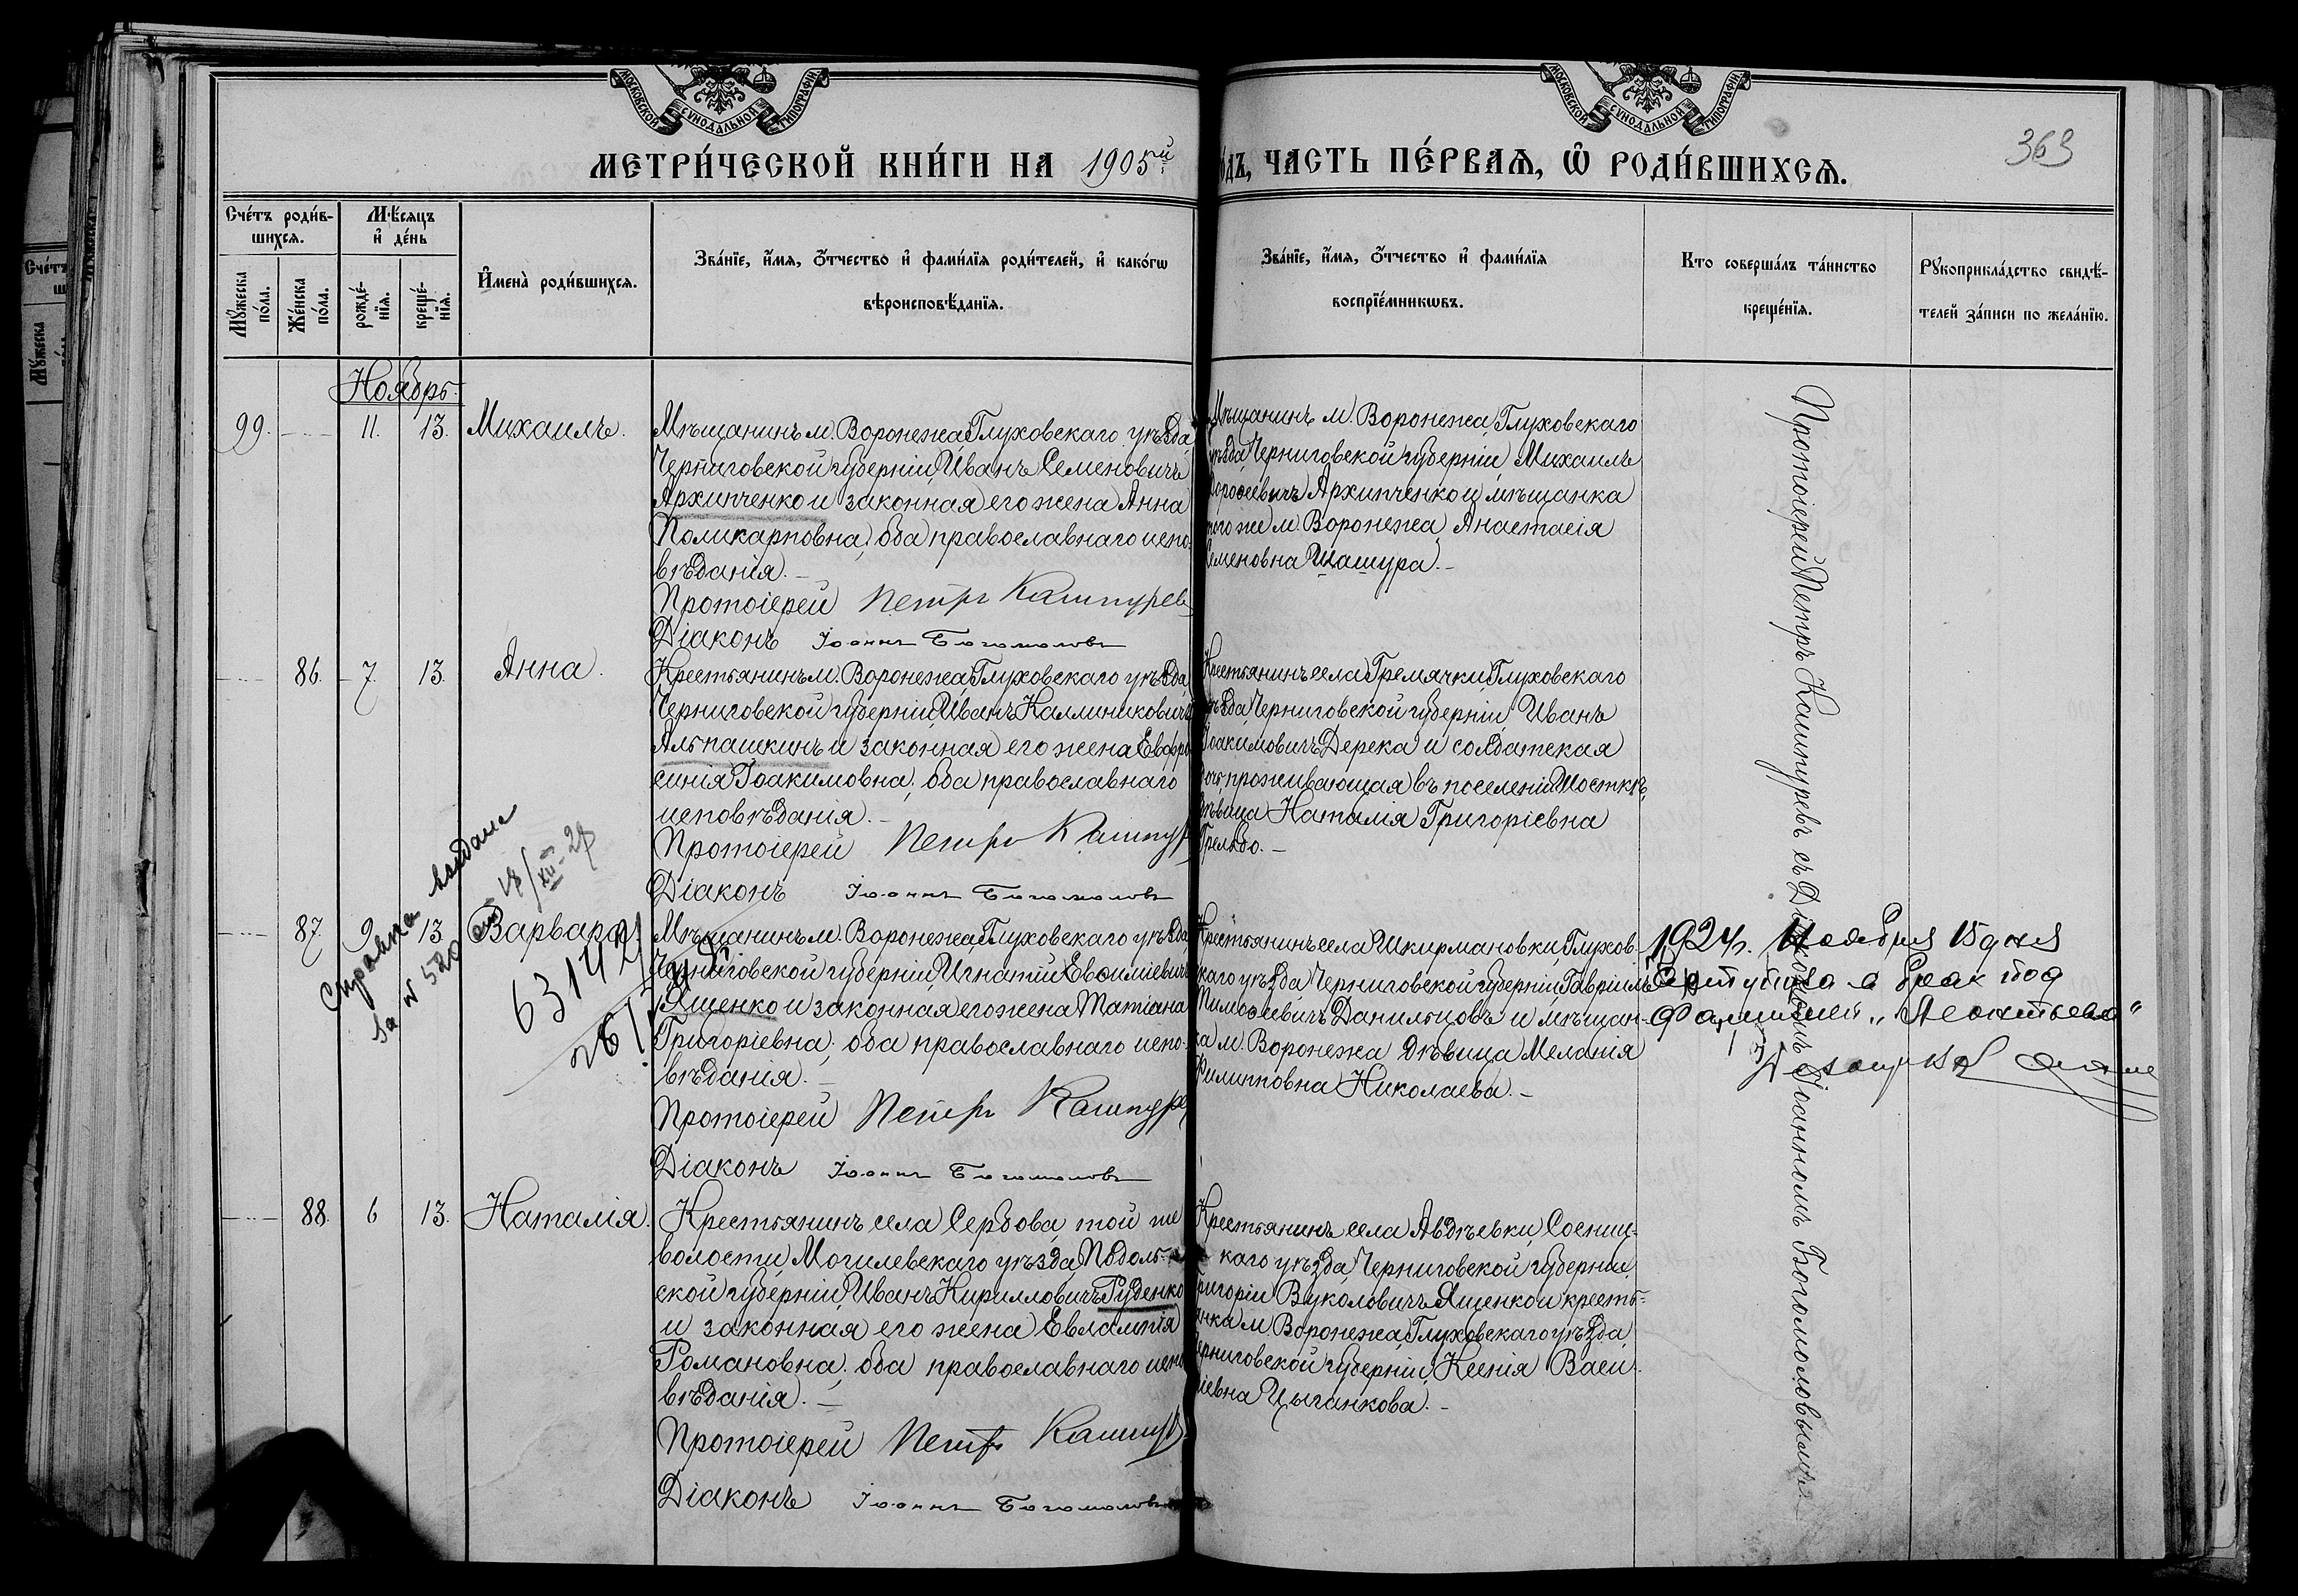 МОСКОВСКОЙ СѴНОДАЛЬНОЙ ТИПОГРАФІИ
МОСКОВСКОЙ СѴНОДАЛЬНОЙ ТИПОГРАФІИ
МЕТРИ́ЧЕСКОЙ КНИ́ГИ НА 1905й
ДЪ, ЧАСТЬ ПЕ́РВАѦ, Ѡ РОДИ́ВШИХСѦ.
363
Сче́тъ роди́в-
шихсѧ.
Мꙋ́жеска по́ла.
Же́нска по́ла.
Мѣ́сѧцъ
и҆ де́нь
рожде́-
нїѧ.
креще́-
нїѧ.
И҆мена̀ роди́вшихсѧ.
Зва́нїе, и҆́мѧ, ѻ҆́тчество и҆ фами́лїѧ роди́телей, и҆ како́гѡ
вѣроисповѣ́данїѧ.
Зва́нїе, и҆́мѧ, ѻ҆́тчество и҆ фами́лїѧ
воспрїе́мникѡвъ.
Кто соверша́лъ та́инство
креще́нїѧ.
Рꙋкоприкла́дство свидѣ́-
телей за́писи по жела́нїю.
Ноябрь.
99. 11. 13. Михаилъ.
Мѣщанинъ м. Воронежа, Глуховскаго уѣзда
Черниговской губерніи, Иванъ Семеновичъ
Архипченко и законная его жена Анна
Поликарповна, оба православнаго испо-
вѣданія. –
Протоіерей Петръ Кашпуревъ
Діаконъ Іоаннъ Богомоловъ
Мѣщанинъ м. Воронежа, Глуховскаго
уѣзда, Черниговской губерніи, Михаилъ
Дороѳеевичъ Архипченко и мѣщанка
того же м. Воронежа Анастасія
Семеновна Шашура. –
86. 7. 13. Анна.
Крестьянинъ м. Воронежа, Глуховскаго уѣзда,
Черниговской губерніи, Иванъ Каллиниковичъ
Алпашкинъ и законная его жена Евфро-
синія Іоакимовна; оба православнаго
исповѣданія. –
Протоіерей Петръ Кашпур
Діаконъ Іоаннъ Богомоловъ
Крестьянинъ села Гремячки, Глуховскаго
уѣзда, Черниговской губерніи, Иванъ
Іоакимовичъ Дерека и солдатская
дочь, проживающая въ поселеніи Шосткѣ,
дѣвица Наталія Григоріевна
87. 9. 13. Варвара.
Мѣщанинъ м. Воронежа, Глуховскаго уѣзда,
Черниговской губерніи, Игнатій Евѳиміевичъ
Ященко и законная его жена Татіана
Григоріевна; оба православнаго испо-
вѣданія. –
Протоіерей Петръ Кашпур
Діаконъ Іоаннъ Богомоловъ
Крестьянинъ села Шкирмановки, Глухов-
скаго уѣзда, Черниговской губерніи, Гавріилъ
Тимоѳеевичъ Данильцовъ и мѣщан-
ка м. Воронежа дѣвица Меланія
Филипповна Николаева. –
Справка выдана
за № 520 от 18/XII-28
63142
1924г. Ноября 15 дня
вступила в брак под
фамилией „Леонтьева"
88. 6 13. Наталія.
Крестьянинъ села Сербова, той же
волости, Могилевскаго уѣзда, Подоль-
ской губерніи, Иванъ Кирилловичъ Руденко
и законная его жена Евлампія
Романовна; оба православнаго испо-
вѣданія. –
Протоіерей Петръ Кашпур
Діаконъ Іоаннъ Богомоловъ
Крестьянинъ села Авдѣевки, Сосниц-
каго уѣзда, Черниговской губерніи,
Григорій Вуколовичъ Ященко и кресть-
янка м. Воронежа, Глуховскаго уѣзда,
Черниговской губерніи, Ксенія Васи-
ліевна Цыганкова. –
Протоіерей Петръ Кашпуревъ съ Діакономъ Іоанномъ Богомоловымъ